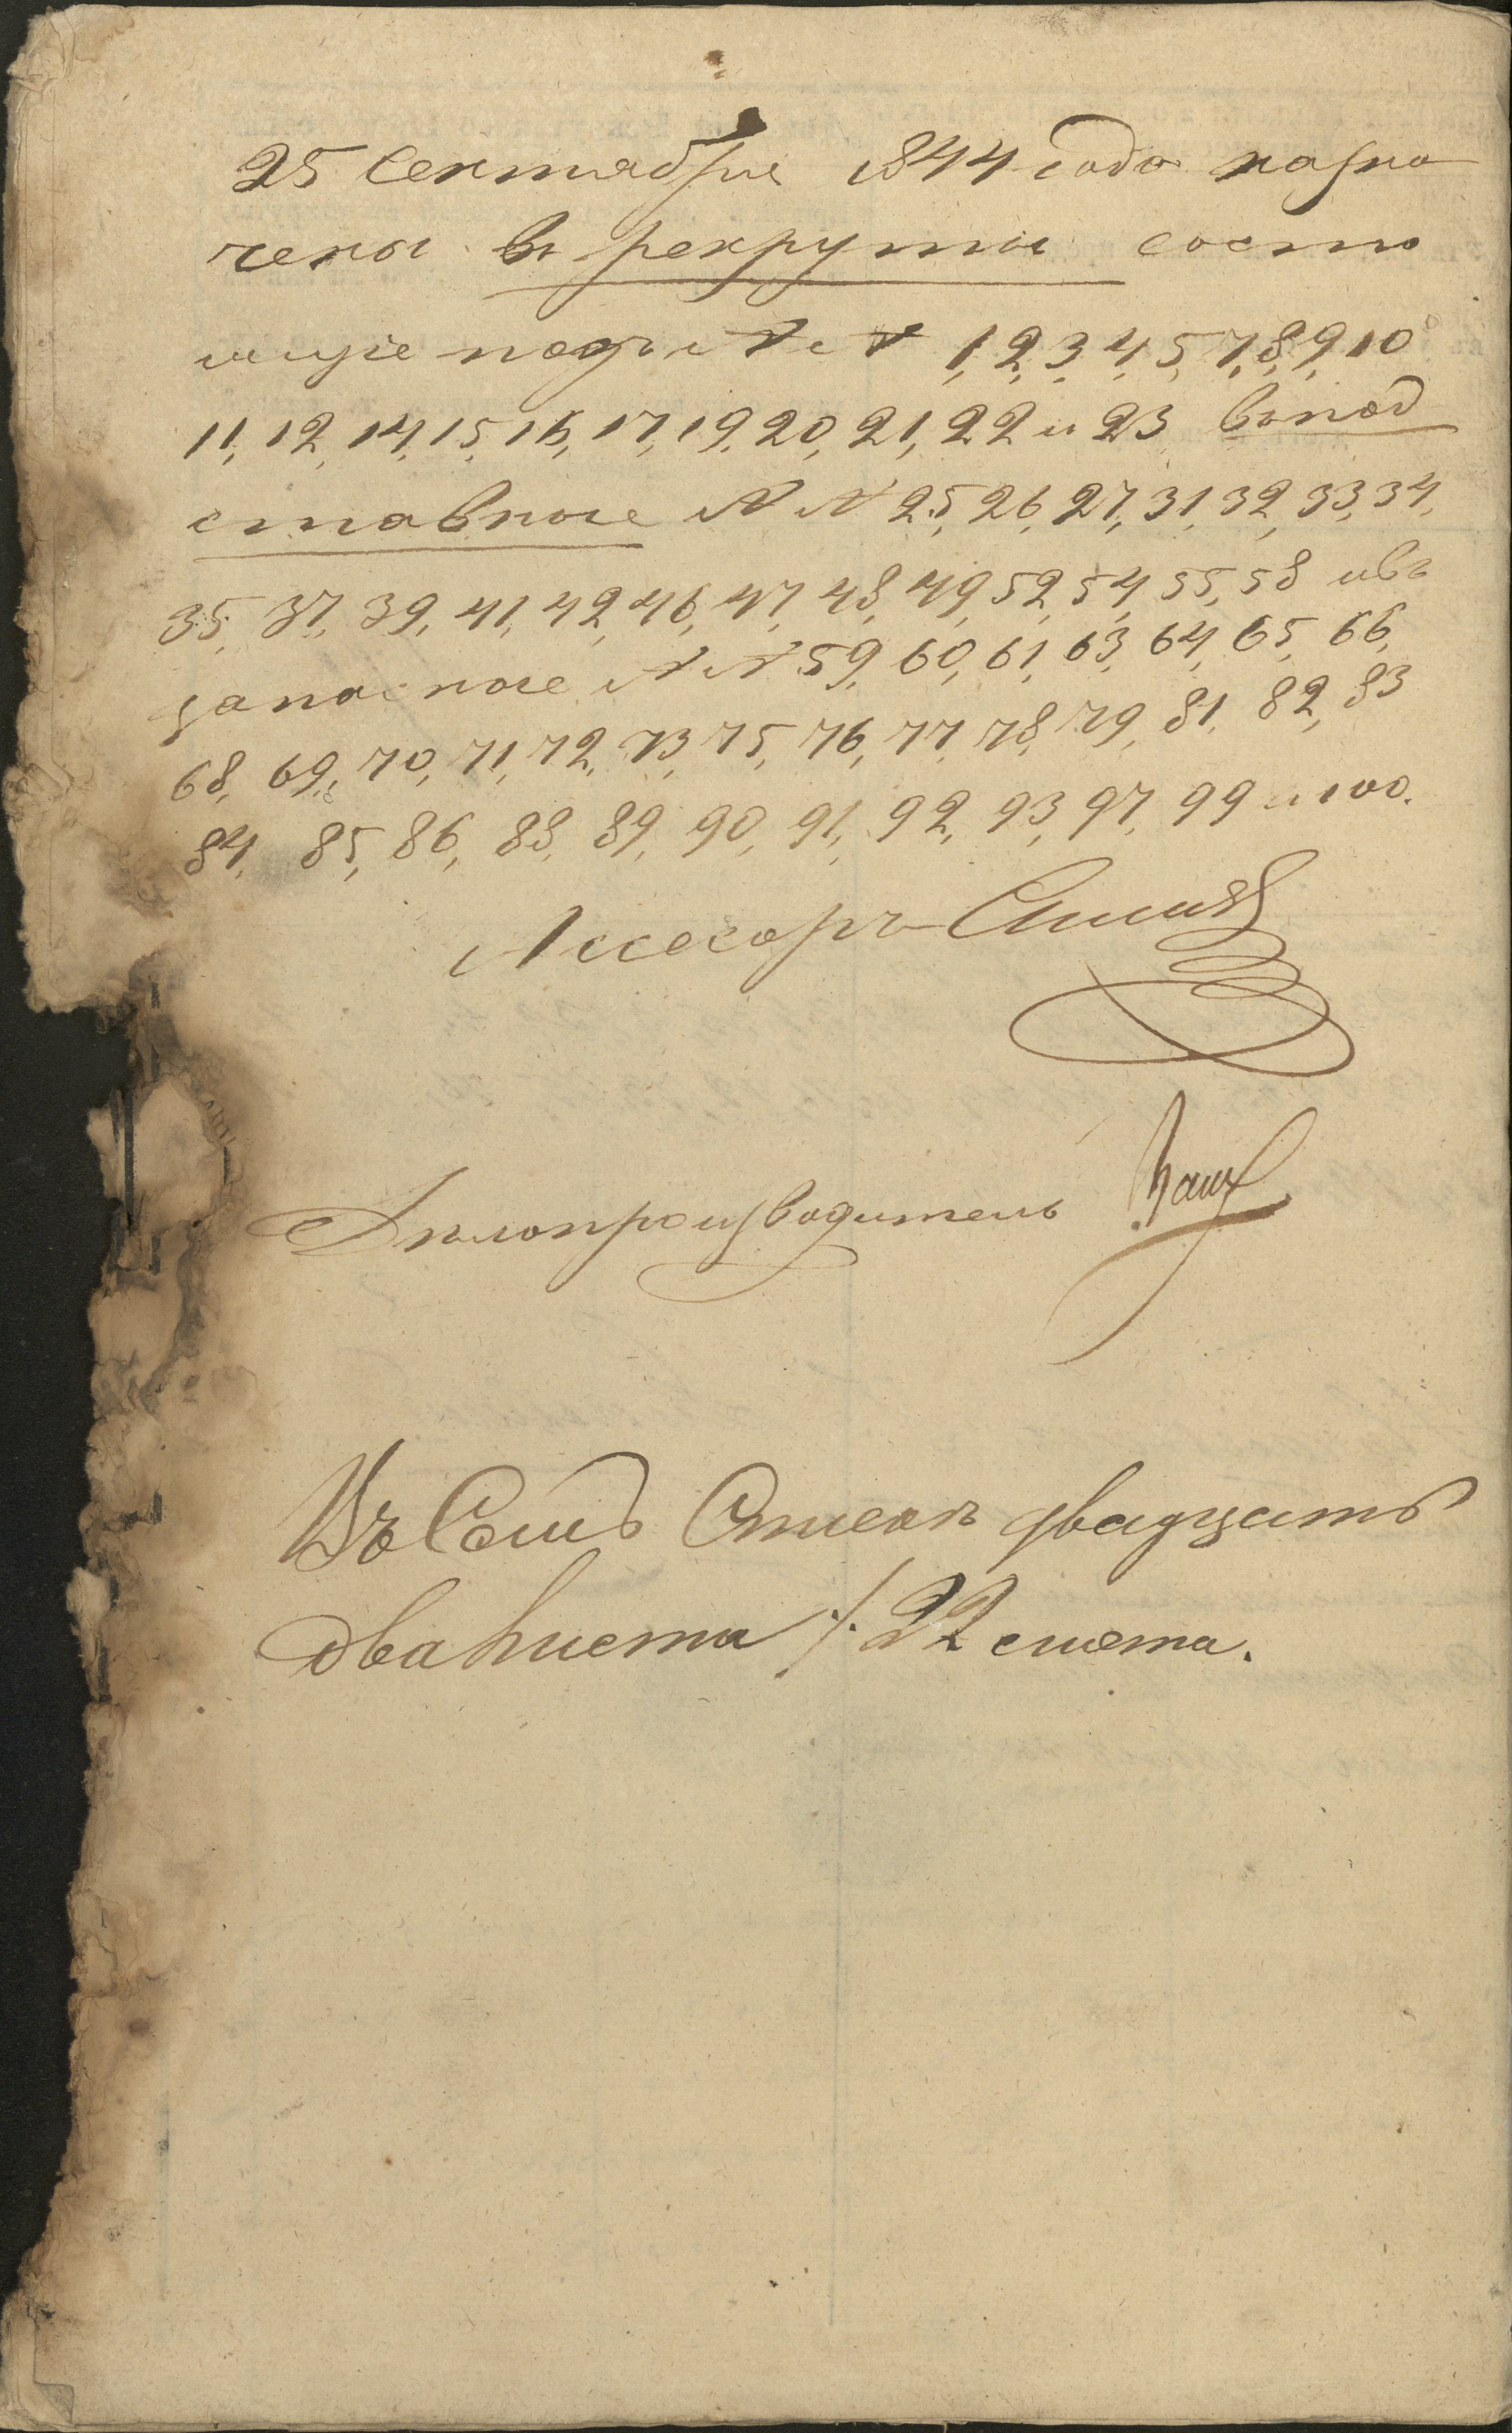 25 Сентября 1844 года назна
чены въ рекруты состо
ящіе подъ №№ 1, 2, 3, 4, 5, 7, 8, 9, 10
11, 12, 14, 15, 16, 17, 19, 20, 21, 22 и 23, въ под
ставные №№ 25, 26, 27, 31, 32, 33, 34,
35, 37, 39, 41, 42, 46, 47, 48, 49, 52, 54, 55, 58 и въ
запасные №№ 59, 60, 61, 63, 64, 65, 66,
68, 69, 70, 71, 72, 73, 75, 76, 77, 78, 79, 81, 82, 83
84, 85, 86, 88, 89, 90, 91, 92, 93, 97, 99 и 100.
Ассесоръ
Дѣлопроизводитель
двадцать
два листа /. 22 листа.